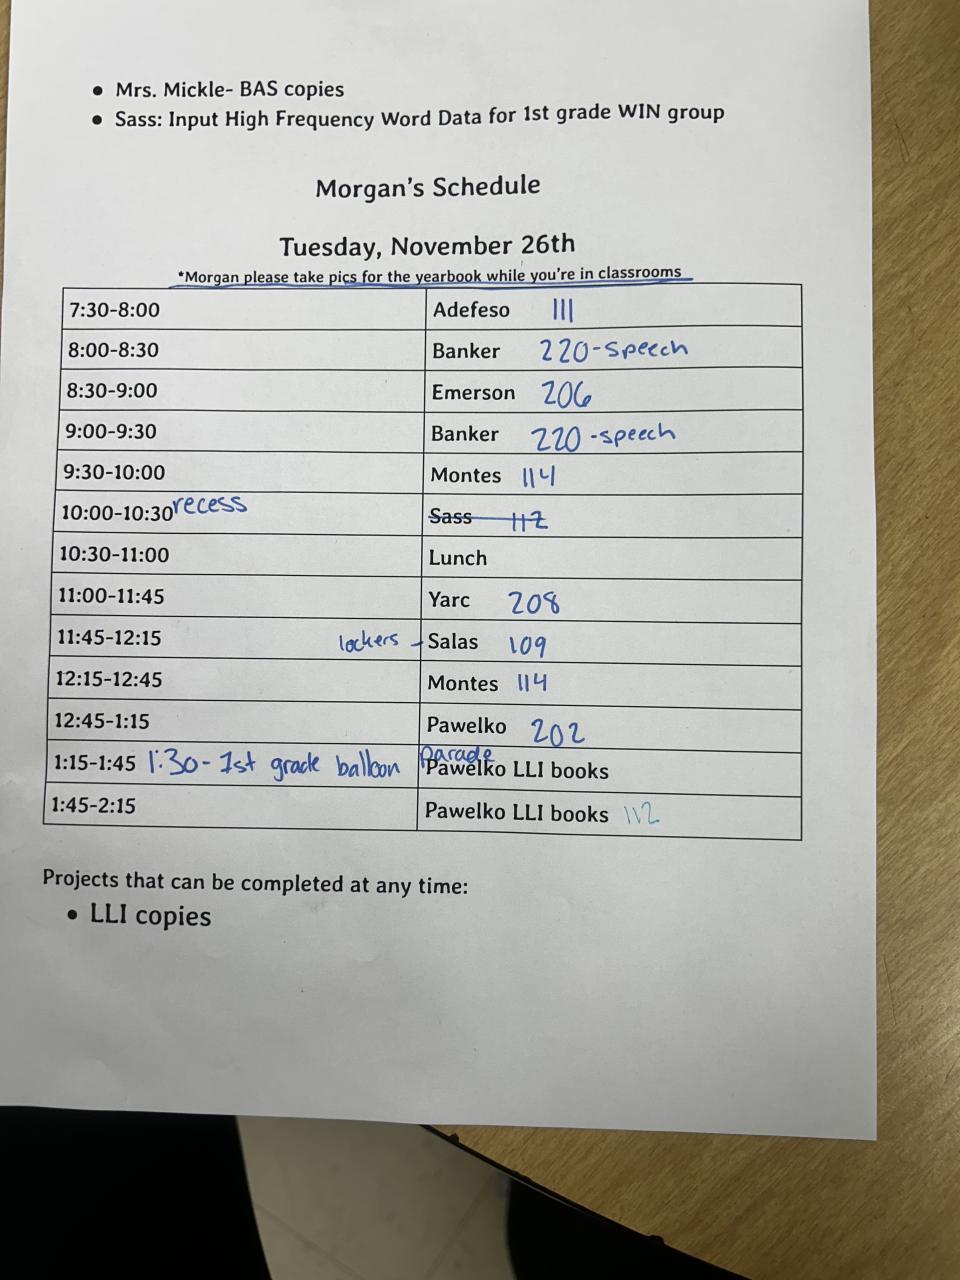 • Mrs. Mickle- BAS copies
• Sass: Input High Frequency Word Data for 1st grade WIN group
Morgan's Schedule
Tuesday, November 26th
*Morgan please take pics for the yearbook while you're in classrooms
7:30-8:00 Adefeso 111
8:00-8:30 Banker 220-speech
8:30-9:00 Emerson 206
9:00-9:30 Banker 220-speech
9:30-10:00 Montes 114
10:00-10:30 recess Sass 112
10:30-11:00 Lunch
11:00-11:45 Yarc 208
11:45-12:15 lockers - Salas 109
12:15-12:45 Montes 114
12:45-1:15 Pawelko 202
1:15-1:45 1:30- 1st grade balloon parade Pawelko LLI books
1:45-2:15 Pawelko LLI books 112
Projects that can be completed at any time:
• LLI copies